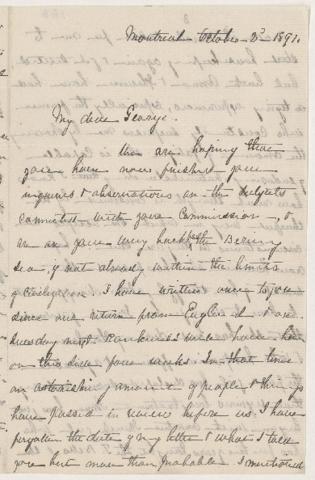 Montreal October 3d 1891.
My dear George.
We are hoping that
you have now finished your
inquiries & observations in the subjects
connected with your Commission, &
are on your way back from the Behring
Sea, if not already within the limits
of civilization. I have written once to you
since our return from England & one
Tuesday next. Rankine will have been
on this side four weeks. In that time
an astonishing amount of people & things
have passed in review before us. I have
forgotten the date of my letter & what I told
you but more than probable I mentioned